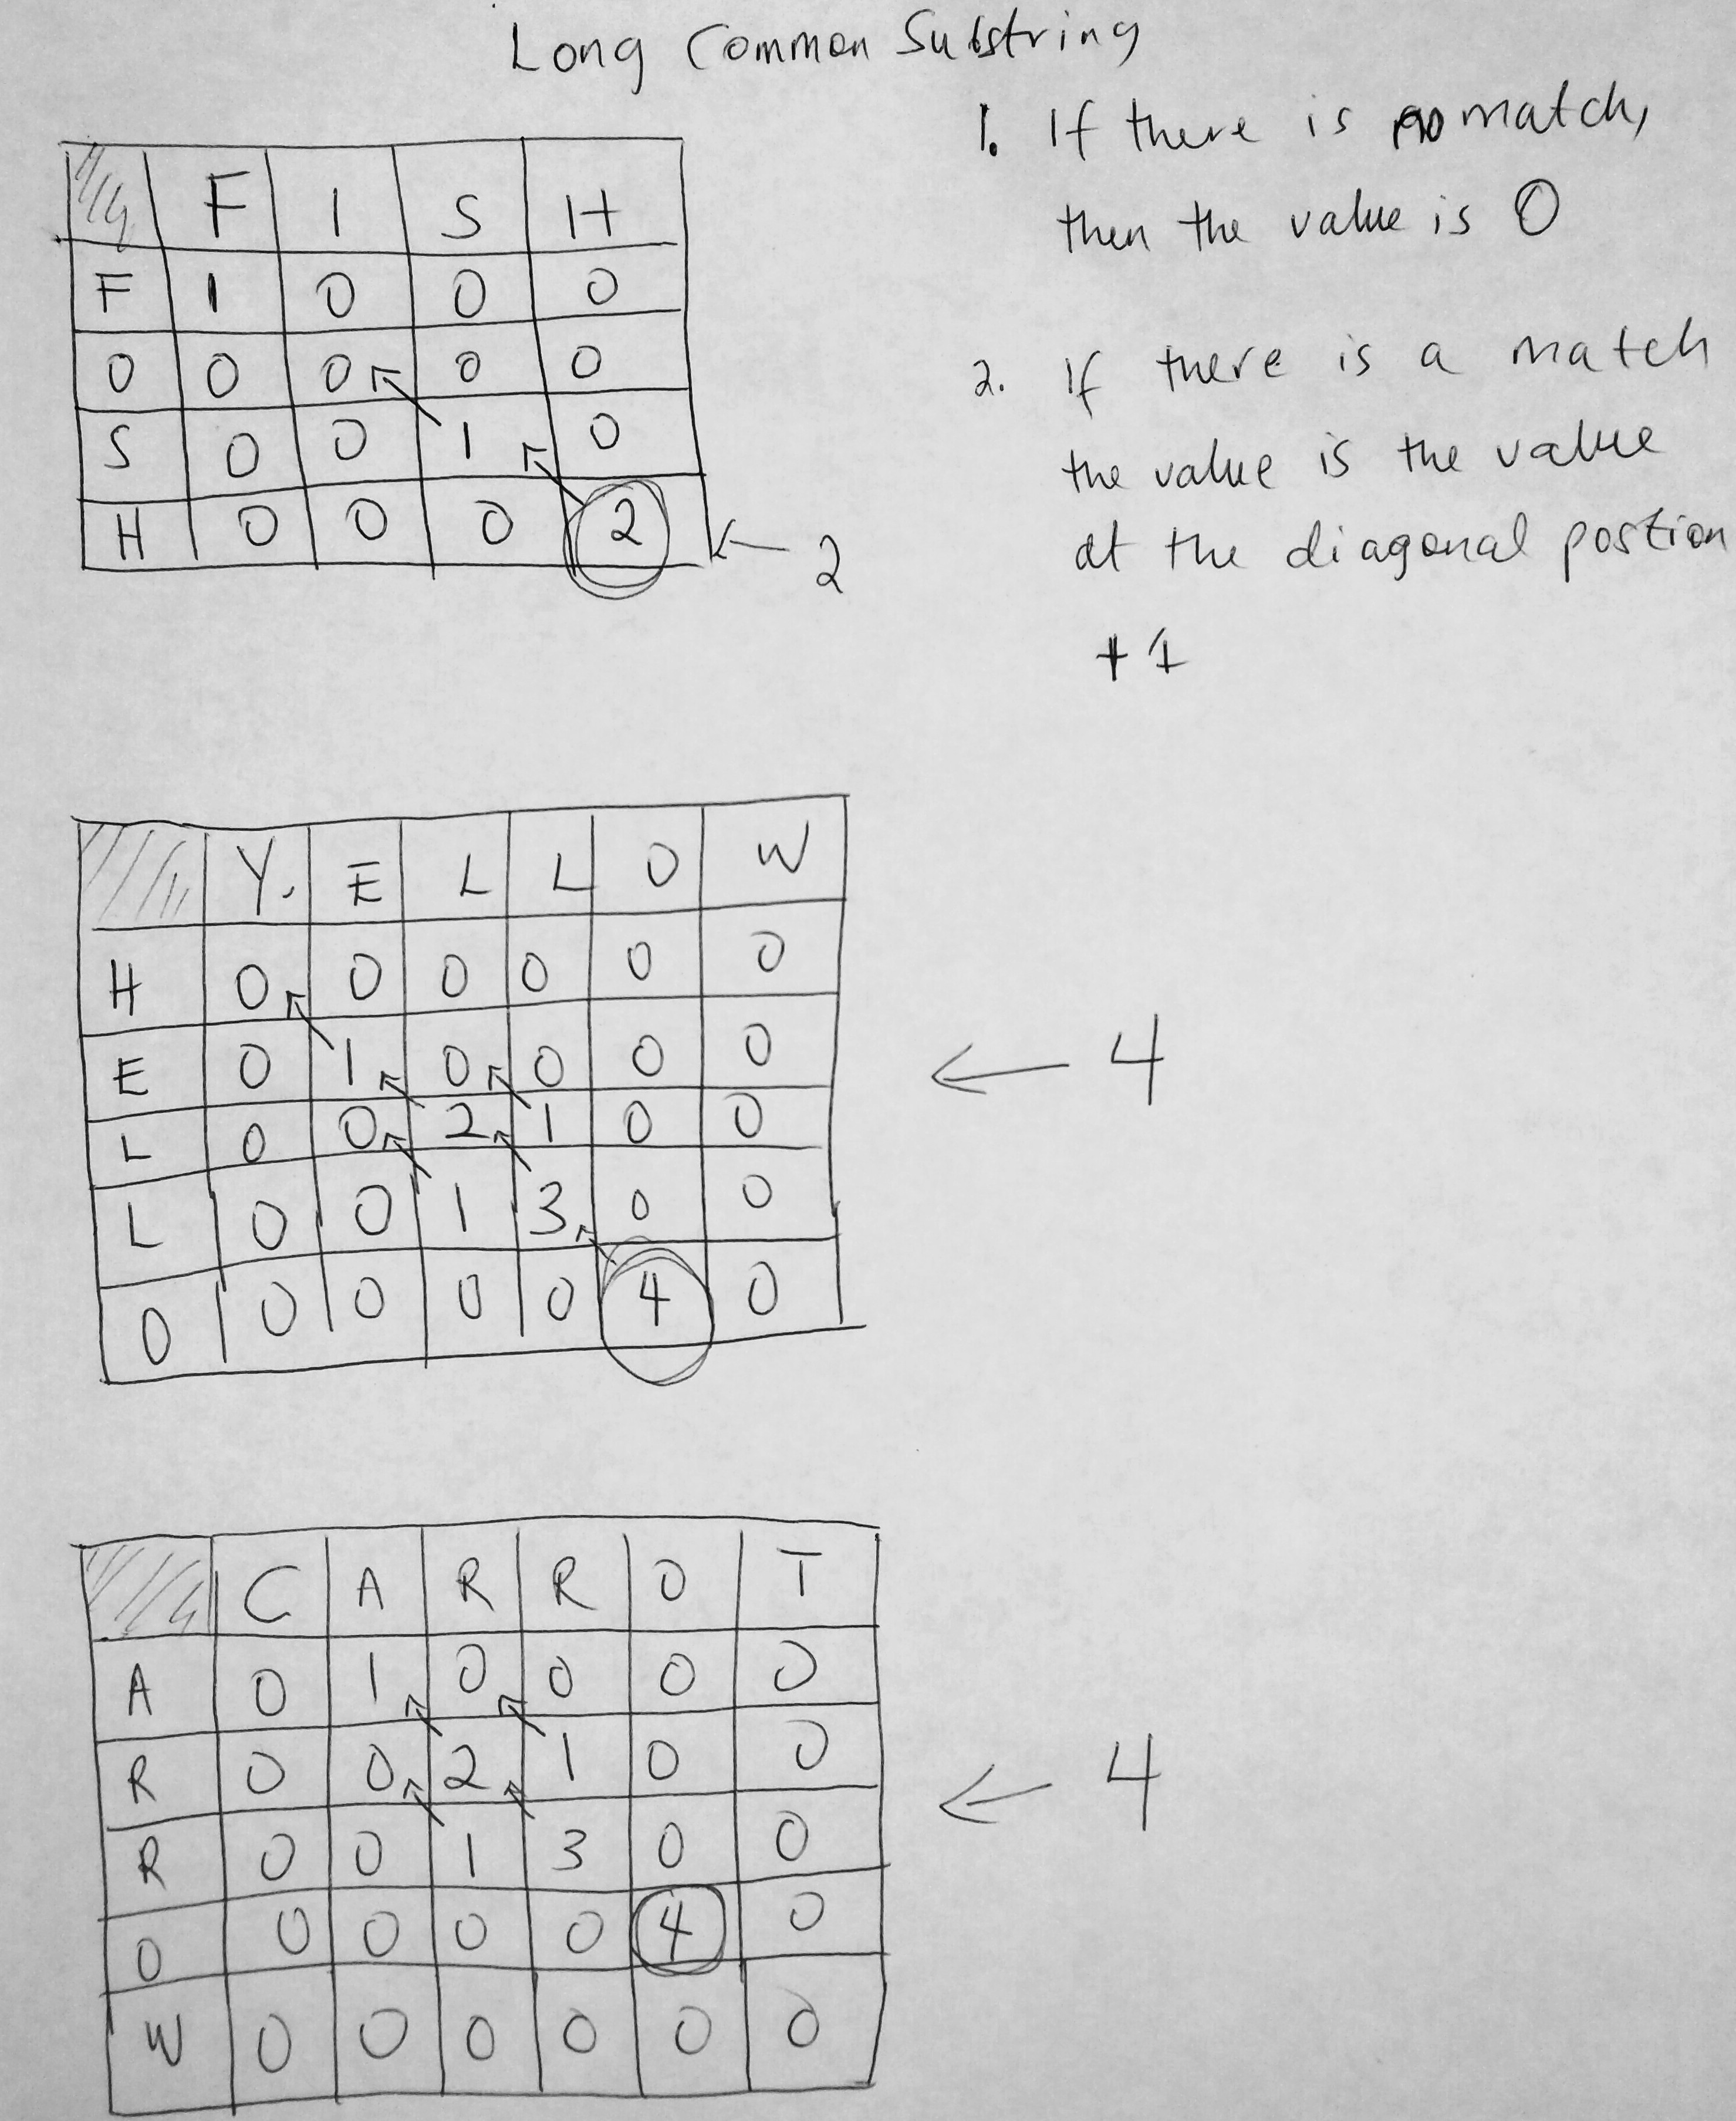 Long Common Substring
1. If there is no match,
then the value is 0
2. If there is a match
the value is the value
at the diagonal postion
+1
F I S H
F 1 0 0 0
O 0 0 0 0
S 0 0 1 0
H 0 0 0 2 ← 2
Y. E L L O W
H 0 0 0 0 0 0
E 0 1 0 0 0 0 ← 4
L 0 0 2 1 0 0
L 0 0 1 3 0 0
O 0 0 0 0 4 0
C A R R O T
A 0 1 0 0 0 0
R 0 0 2 1 0 0 ← 4
R 0 0 1 3 0 0
O 0 0 0 0 4 0
W 0 0 0 0 0 0